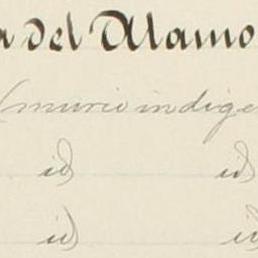 a del Alamo
(murio indige
id id
id id